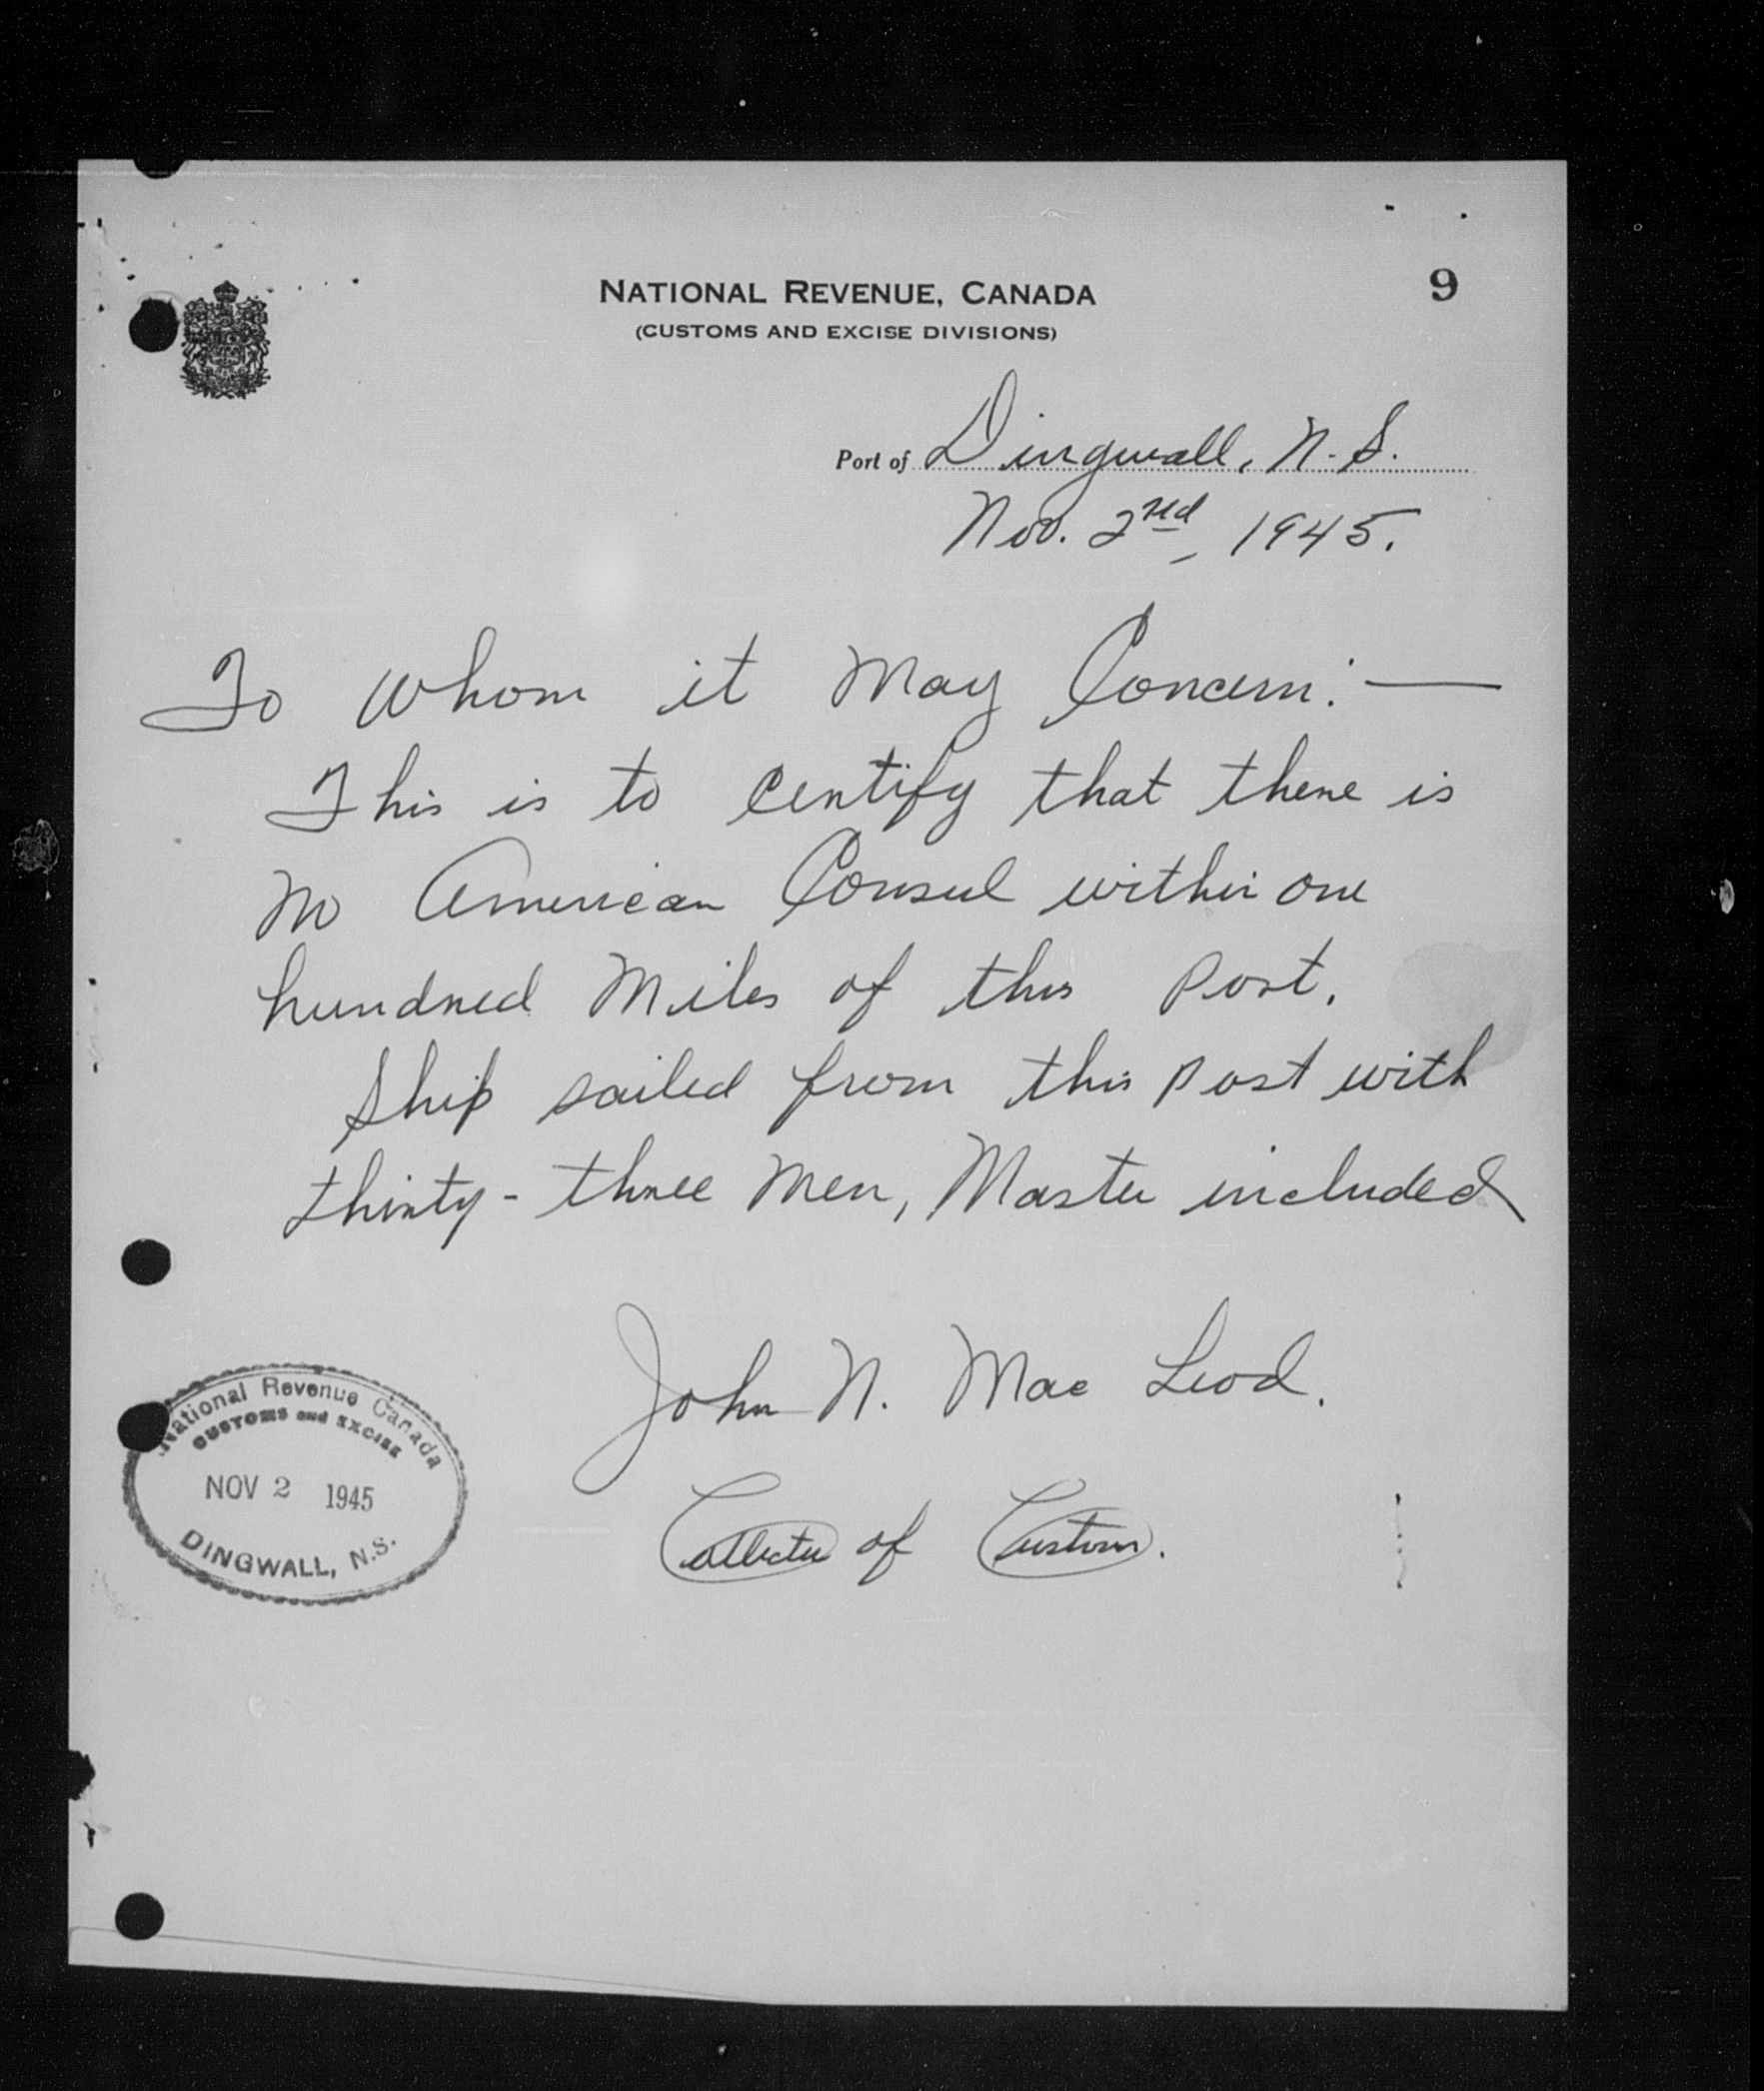 NATIONAL REVENUE, CANADA
9
(CUSTOMS AND EXCISE DIVISIONS)
Port of Dingwall, N.S.
Nov. 2nd, 1945.
To Whom it May Concern:—
This is to Certify that there is
no American Consul within one
hundred Miles of this Port.
Ship sailed from this Port with
thirty-three Men, Master included
John N. Mac Leod.
Collector of Customs.
National Revenue Canada
CUSTOMS and EXCISE
NOV 2 1945
DINGWALL, N.S.